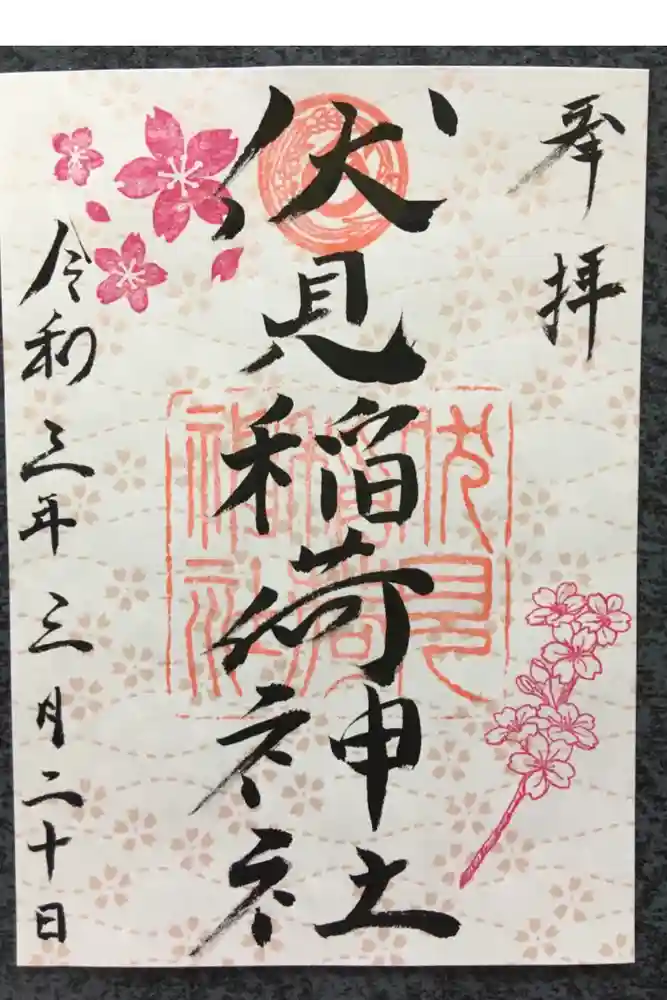 奉拝
伏見稲荷神社
伏見稲荷神社
令和三年三月二十日